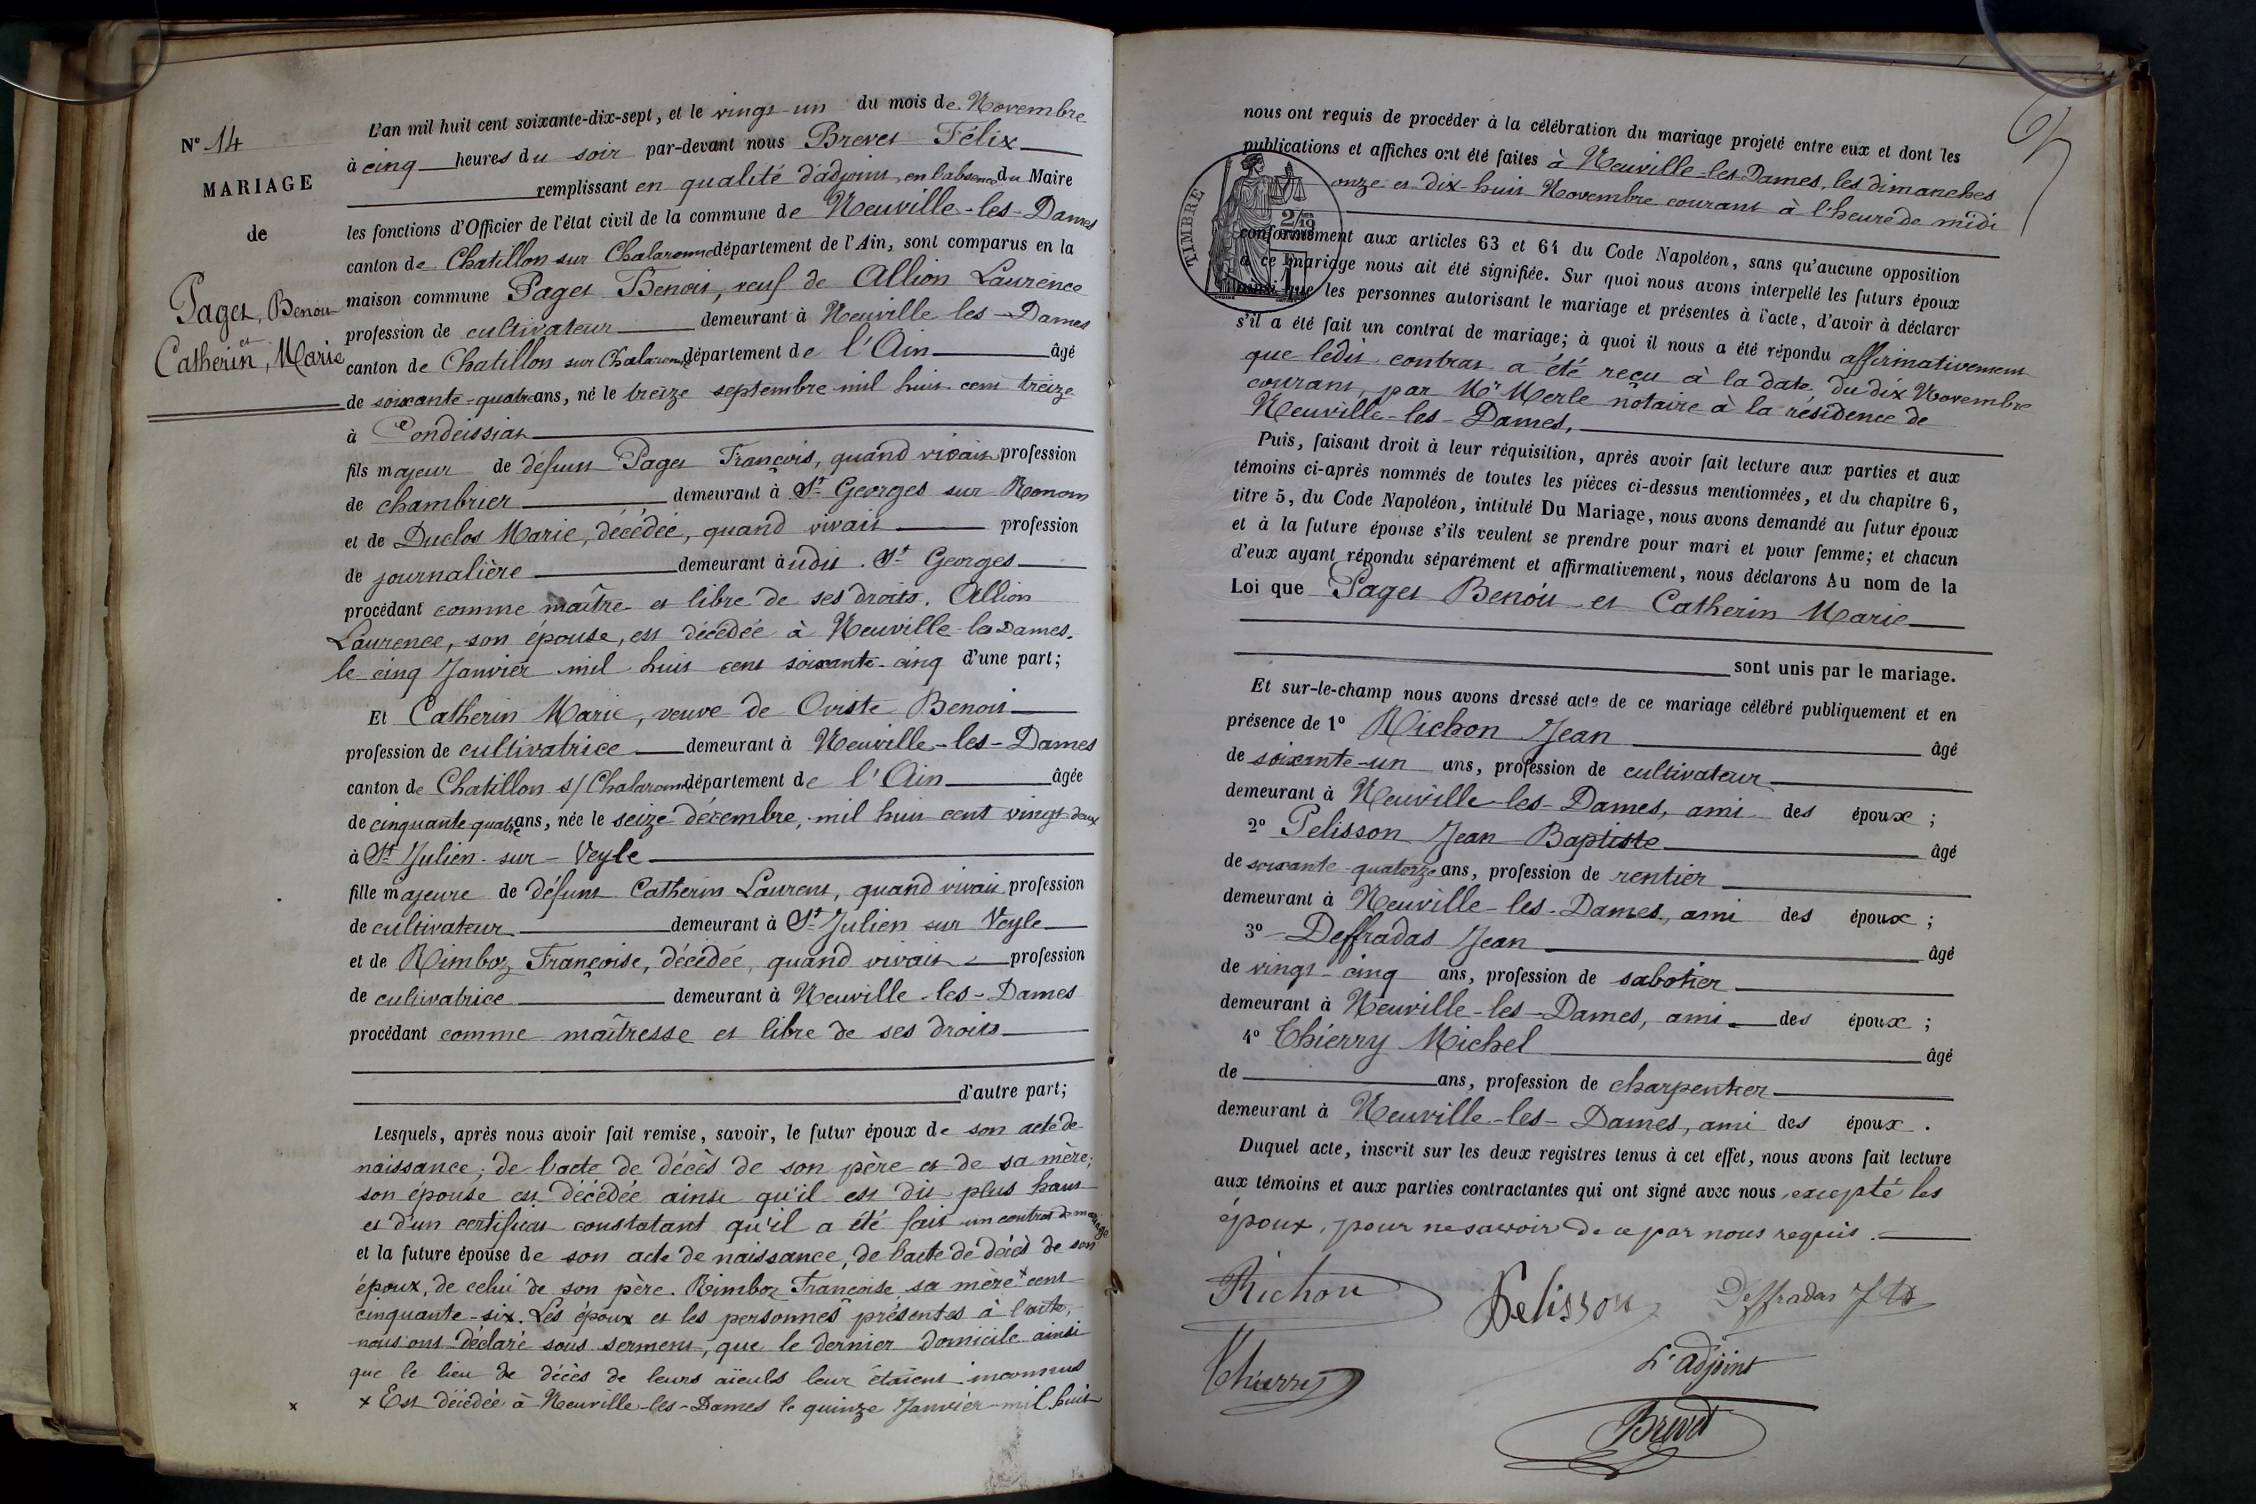 N° 14
MARIAGE
de
Paget, Benoit
et
Catherin, Marie
L'an mil huit cent soixante-dix-sept, et le vingt-un du mois de Novembre
à cinq heures du soir par-devant nous Brevet Félix
remplissant en qualité d'adjoint, en l'absence du Maire
les fonctions d'Officier de l'état civil de la commune de Neuville-les-Dames
canton de Chatillon sur Chalaronne département de l'Ain, sont comparus en la
maison commune Paget Benoit, veuf de Allion Laurence
profession de cultivateur demeurant à Neuville les-Dames
canton de Chatillon sur Chalaronne département de l'Ain âgé
de soixante-quatre ans, né le treize septembre mil huit cent treize
à Condeissiat
fils majeur de défunt Paget François, quand vivait profession
de chambrier demeurant à St Georges sur Renom
et de Duclos Marie, décédée, quand vivait profession
de journalière demeurant à udit St Georges
procédant comme maître et libre de ses droits. Allion
Laurence, son épouse, est décédée à Neuville-les Dames.
le cinq Janvier mil huit cent soixante-cinq d'une part;
Et Catherin Marie, veuve de Oviste Benoit
profession de cultivatrice demeurant à Neuville-les-Dames
canton de Chatillon s/ Chalaronne département de l'Ain âgée
de cinquante quatre ans, née le seize décembre, mil huit cent vingt-deux
à St Julien-sur-Veyle
fille majeure de défunt Catherin Laurent, quand vivait profession
de cultivateur demeurant à St Julien sur Veyle
et de Rimboz Françoise, décédée, quand vivait profession
de cultivatrice demeurant à Neuville-les-Dames
procédant comme maîtresse et libre de ses droits
d'autre part;
Lesquels, après nous avoir fait remise, savoir, le futur époux de son acte de
naissance, de l'acte de décès de son père et de sa mère;
son épouse est décédée ainsi qu'il est dit plus haut
et d'un certificat constatant qu'il a été fait un contrat de mariage
et la future épouse de son acte de naissance, de l'acte de décès de son
époux, de celui de son père. Rimboz Françoise sa mère x cent
cinquante-six. Les époux et les personnes présentes à l'acte,
nous ont déclaré sous serment, que le dernier domicile ainsi
que le lieu de décès de leurs aïeuls leur étaient inconnus
x x Est décédée à Neuville-les-Dames le quinze Janvier mil huit
nous ont requis de procéder à la célébration du mariage projeté entre eux et dont les
publications et affiches ont été faites à Neuville-les-Dames, les dimanches
onze et dix-huit Novembre courant à l'heure de midi
TIMBRE
conformément aux articles 63 et 64 du Code Napoléon, sans qu'aucune opposition
à ce mariage nous ait été signifiée. Sur quoi nous avons interpellé les futurs époux
ainsi que les personnes autorisant le mariage et présentes à l'acte, d'avoir à déclarer
s'il a été fait un contrat de mariage; à quoi il nous a été répondu affirmativement
que ledit contrat a été reçu à la date du dix Novembre
courant, par Mr Merle notaire à la résidence de
Neuville-les-Dames,
Puis, faisant droit à leur réquisition, après avoir fait lecture aux parties et aux
témoins ci-après nommés de toutes les pièces ci-dessus mentionnées, et du chapitre 6,
titre 5, du Code Napoléon, intitulé Du Mariage, nous avons demandé au futur époux
et à la future épouse s'ils veulent se prendre pour mari et pour femme; et chacun
d'eux ayant répondu séparément et affirmativement, nous déclarons Au nom de la
Loi que Paget Benoit et Catherin Marie
sont unis par le mariage.
Et sur-le-champ nous avons dressé acte de ce mariage célébré publiquement et en
présence de 1° Richon Jean âgé
de soixante-un ans, profession de cultivateur
demeurant à Neuville-les-Dames, ami des époux ;
2° Pelisson Jean Baptiste âgé
de soixante-quatorze ans, profession de rentier
demeurant à Neuville-les-Dames, ami des époux ;
3° Deffradas Jean âgé
de vingt-cinq ans, profession de sabotier
demeurant à Neuville-les-Dames, ami des époux ;
4° Thierry Michel âgé
de ans, profession de charpentier
demeurant à Neuville-les-Dames, ami des époux .
Duquel acte, inscrit sur les deux registres tenus à cet effet, nous avons fait lecture
aux témoins et aux parties contractantes qui ont signé avec nous, excepté les
époux, pour ne savoir de ce par nous requis.
Richon Pelisson Deffradas
Thierry L'adjoint
Brevet